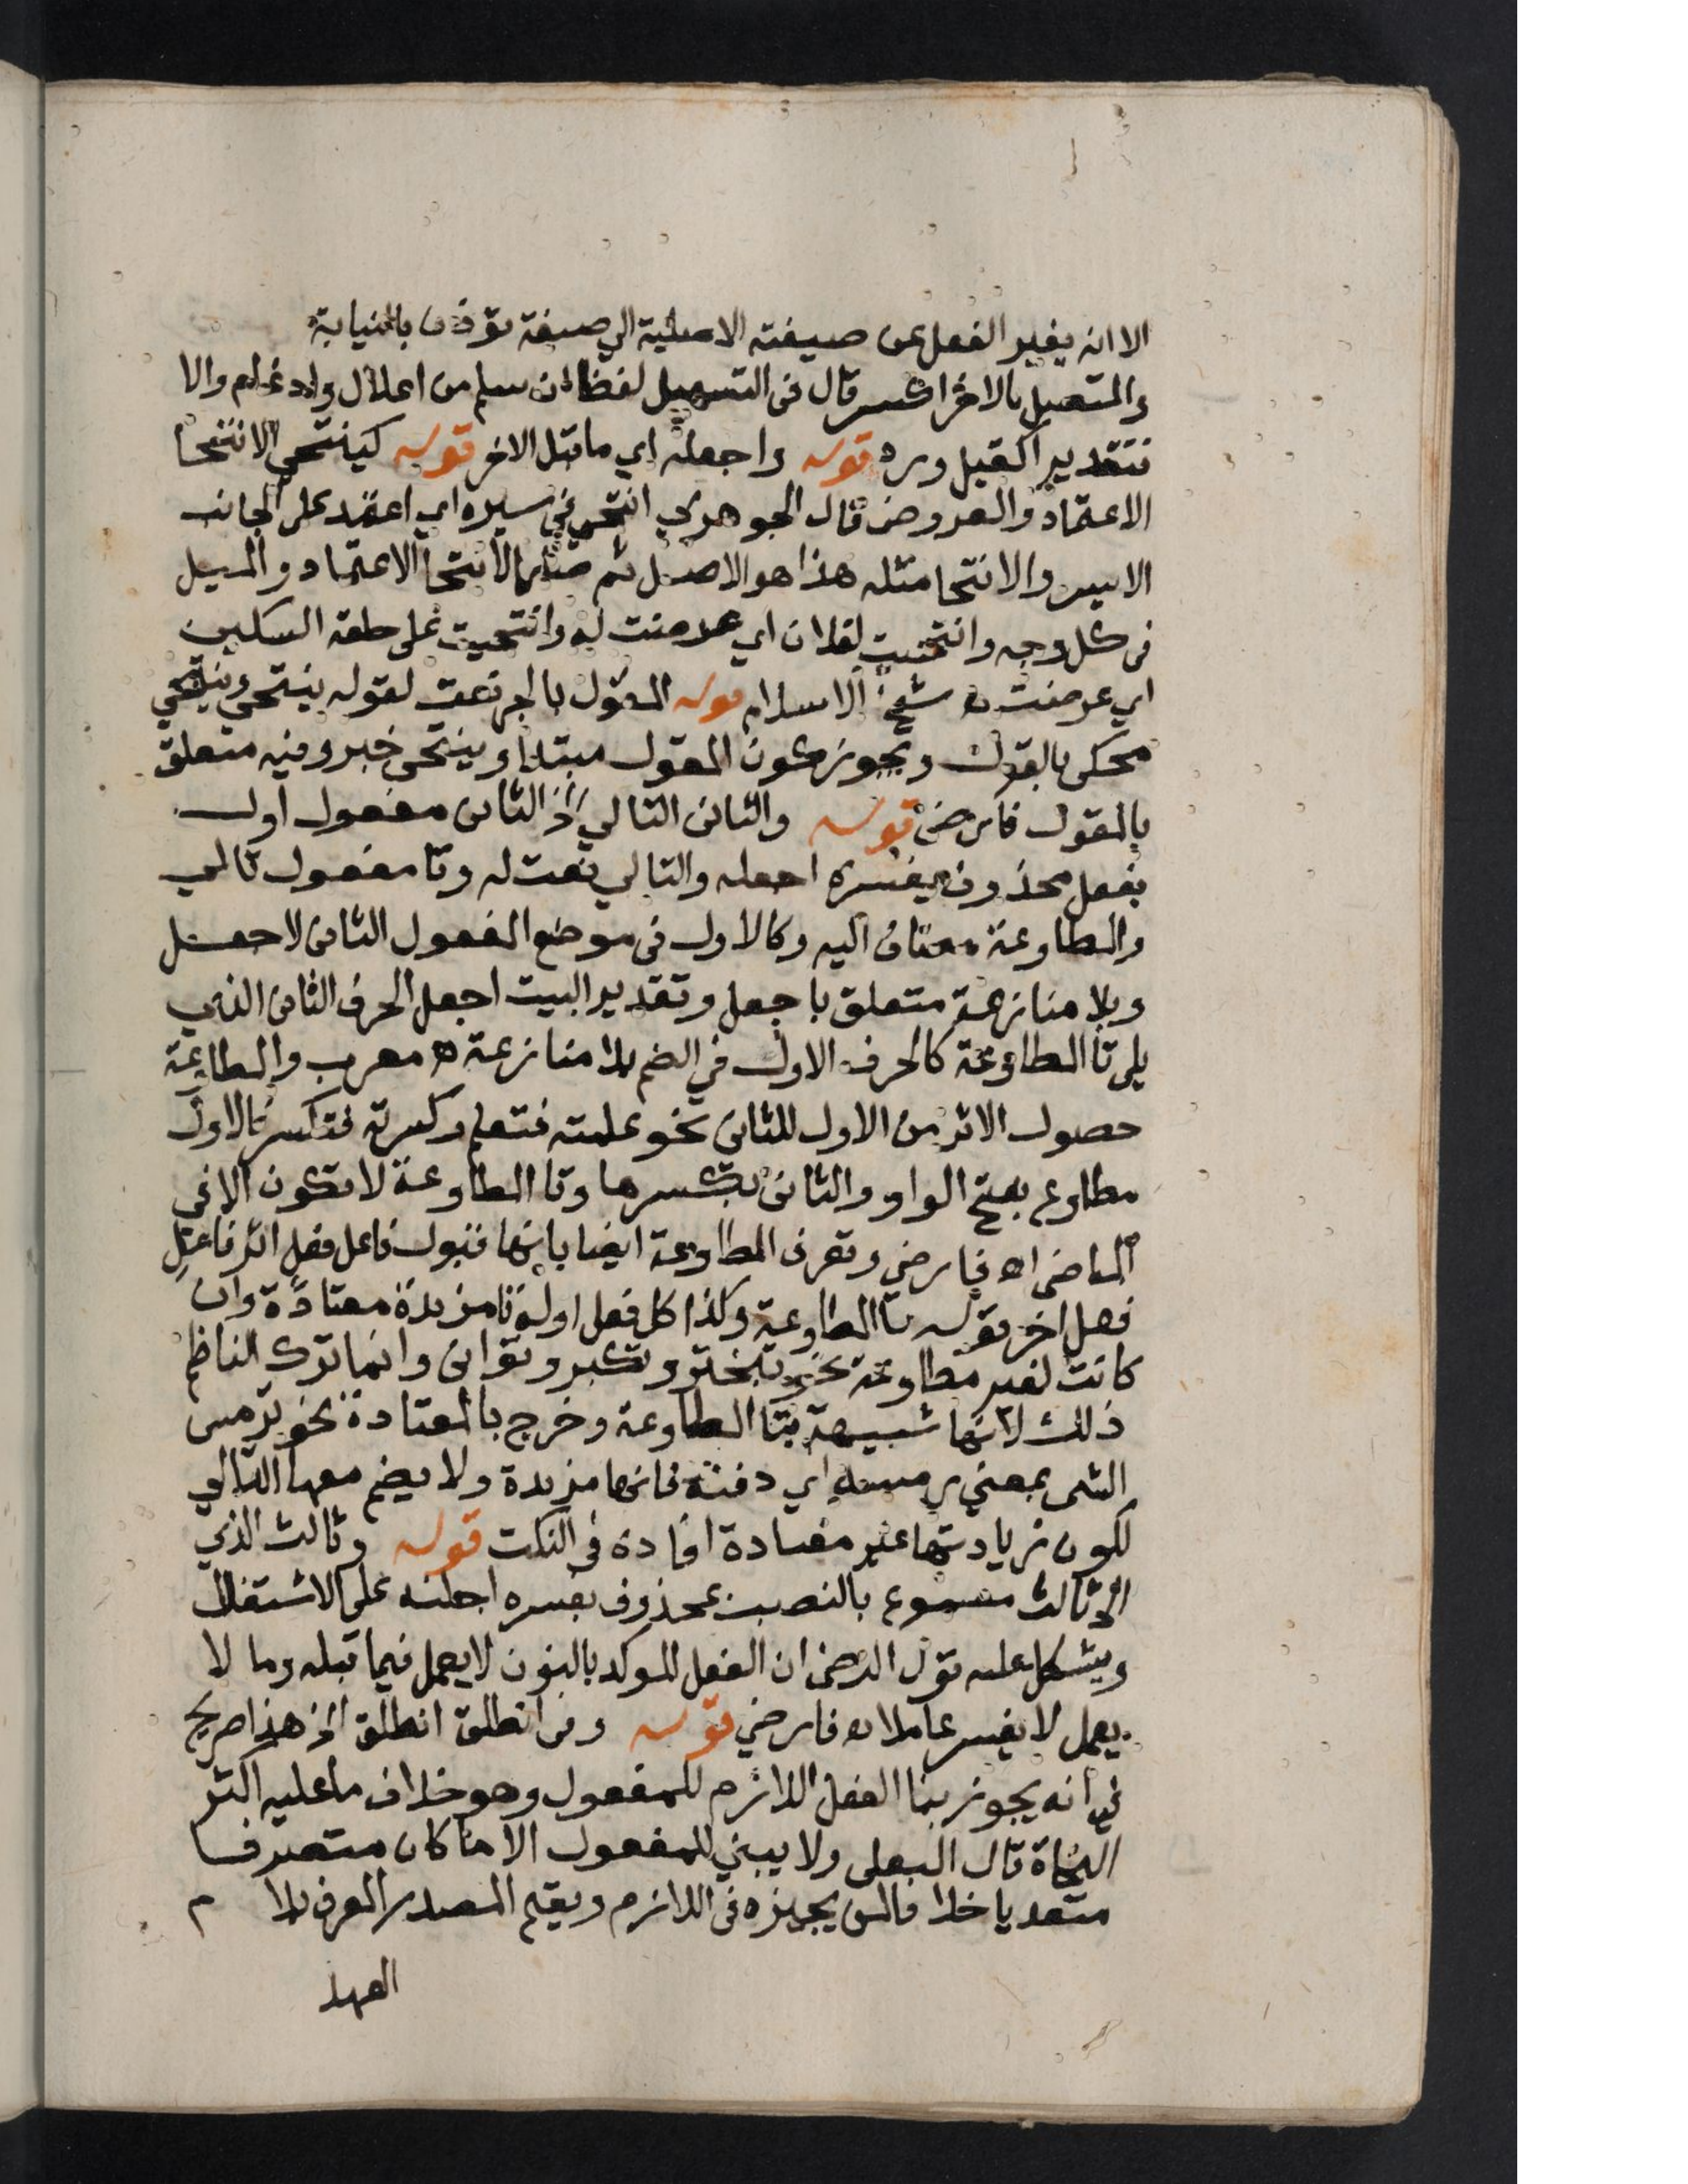 الا انه يغير الفعل عن صيغته الاصلية الي صيغة توذن بالنيابة
والمتصل بالاخر اكسر قال في التسهيل لفظا ان سلم من اعلال وادغام والا
فتقديرا كقيل ورد قوله واجعله اي ما قبل الاخر قوله كينتحي الانتحا
الاعتماد والعروض قال الجوهري انتحى في سيره اي اعتمد على الجانب
الايسر والانتحا مثله هذا هو الاصل ثم صار الانتحا الاعتماد والميل
في كل وجه وانتحيت لفلان اي عرضت له وانتحيت على حلقه السكين
اي عرضت ه شيخ الاسلام قوله المقول بالجر نعت لقوله ينتحي وينتحي
محكي بالقول ويجوز كون المقول مبتدا وينتحى خبر وفيه متعلق
بالمقول فارضى قوله والثاني التالي الخ الثاني مفعول اول
بفعل محذوف يفسره اجعله والتالي نعت له وتا مفعول تالي
والمطاوعة مضاف اليه وكالاول في موضع المفعول الثاني لاجعل
وبلا منازعة متعلق باجعل وتقدير البيت اجعل الحرف الثاني الذي
يلي تا المطاوعة كالحرف الاول في الضم بلا منازعة ه معرب والمطاوعة
حصول الاثر من الاول للثاني نحو علمته فتعلم وكسرته فتكسر فالاول
مطاوع بفتح الواو والثاني بكسرها وتا المطاوعة لا تكون الا في
الماضي اه فارضي وتعرف المطاوعة ايضا بانها قبول فاعل فعل اثر فاعل
فعل اخر قوله تا المطاوعة وكذا كل فعل اوله تا مزيدة معتادة وان
كانت لغير مطاوعة نحو تبختر وتكبر وتوانى وانما ترك الناظم
ذلك لانها شبيهة بتا المطاوعة وخرج بالمعتادة نحو ترمس
الشى بمعني رمسه اي دفنه فانها مزيدة ولا يضم معها التالي
لكون زيادتها غير معتادة افاده في النكت قوله وثالث الذي
الخ ثالث مسموع بالنصب بمحذوف يفسره اجعلنه على الاشتغال
ويشكل عليه قول الرضى ان الفعل الموكد بالنون لا يعمل فيما قبله وما لا
يعمل لا يفسر عاملا ه فارضي قوله وفى انطلق انطلق الخ هذا صريح
في انه يجوز بنا الفعل اللازم للمفعول وهو خلاف ما عليه اكثر
النحاة قال البعلى ولا يبني للمفعول الا ما كان متصرفا
متعديا خلافا لمن يجيزه في اللازم ويقيم المصدر المعرف بلام
العهد